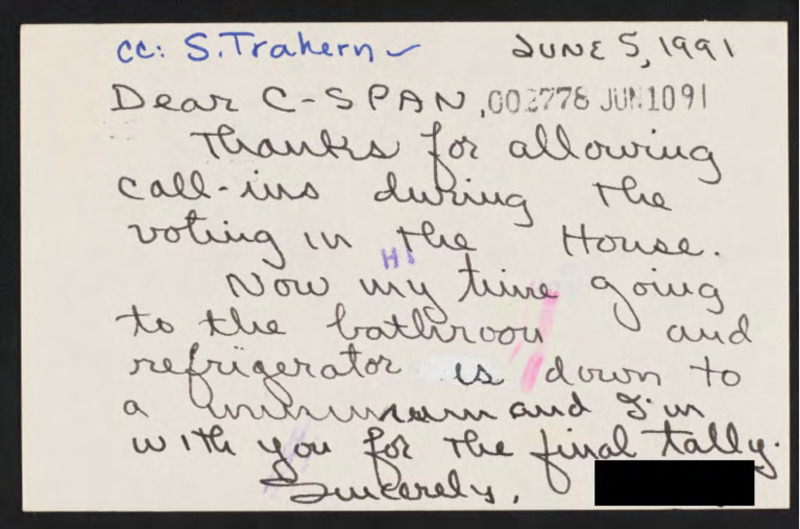 cc: S. Trahern ✓ JUNE 5, 1991
Dear C-SPAN, 002778 JUN 10 91
Thanks for allowing
call-ins during the
voting in the House.
Hi
Now my time going
to the bathroom and
refrigerator is down to
a minimum and I'm
with you for the final tally.
Sincerely,